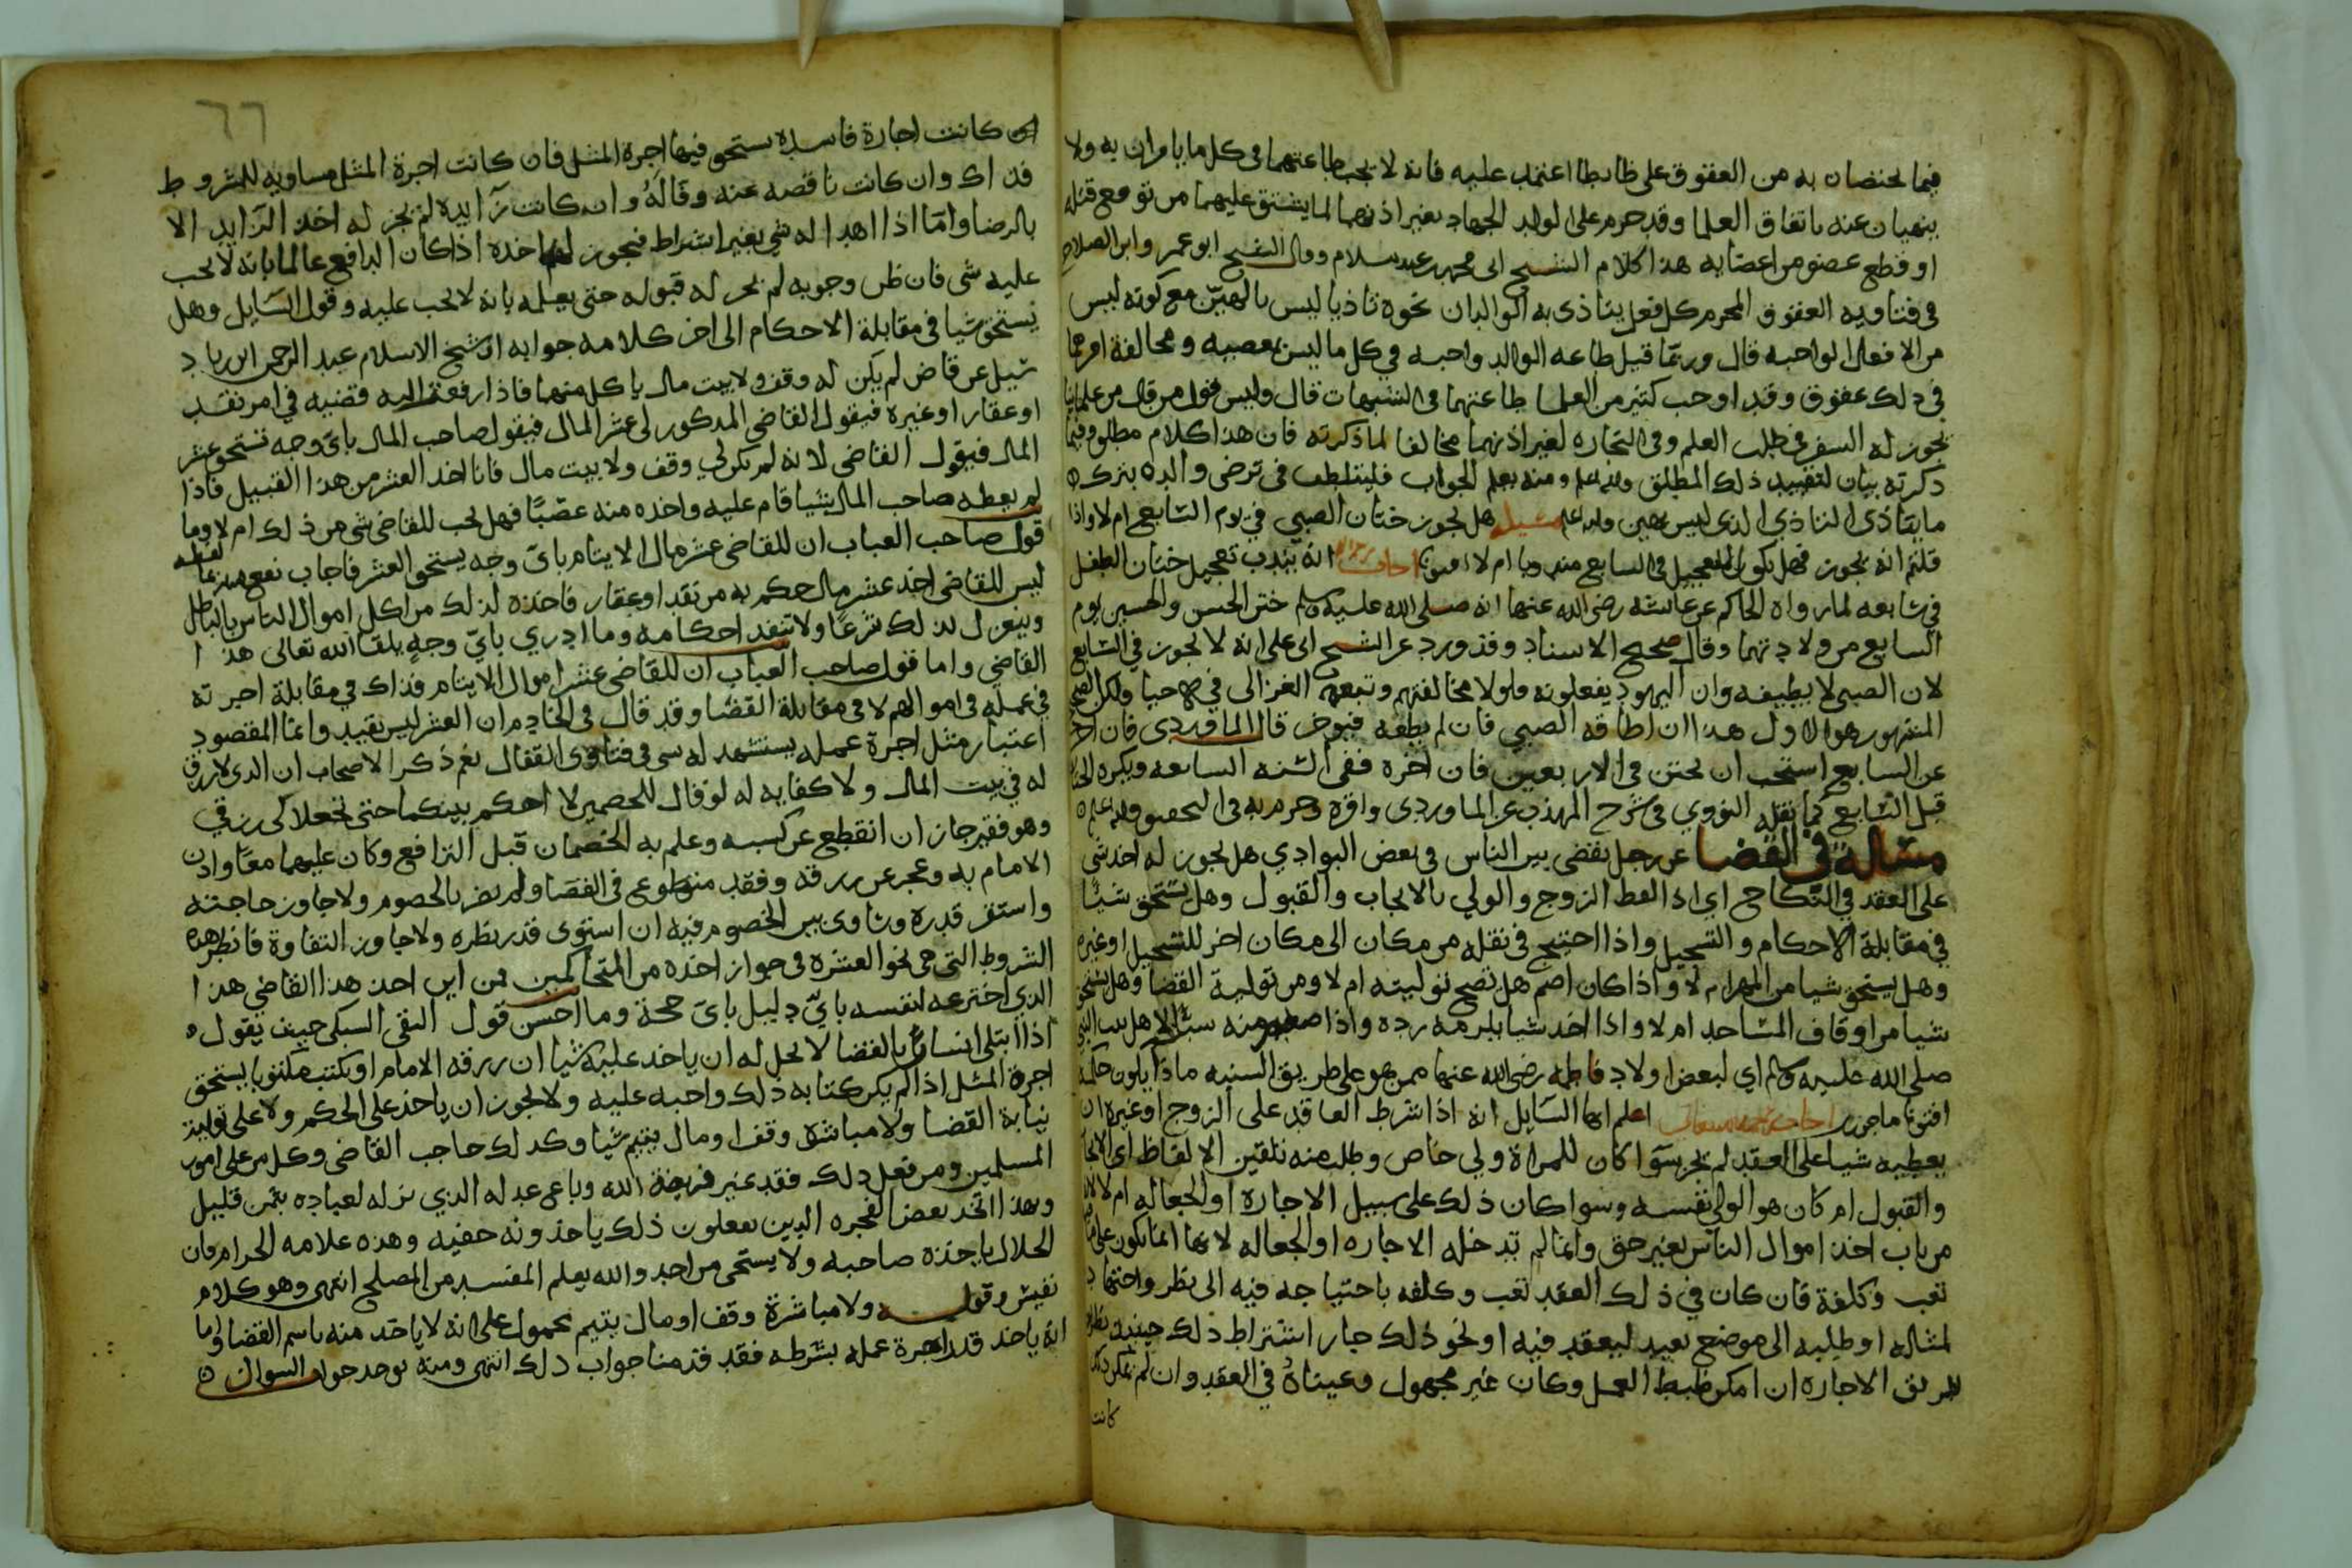 فيما يختصان به من العقوق على ظابط اعتمد عليه فانه لا يجب طاعتهما في كل ما يامران به ولا
ينهيان عنه باتفاق العلما وقد حرم على الولد الجهاد بغير اذنهما لما يشق عليهما من توقع قتله
او قطع عضو من اعضايه هذا كلام الشيخ ابي محمد بن عبد السلام وقال الشيخ ابو عمرو ابن الصلاح
في فتاويه العقوق المحرم كل فعل يتاذى به الوالدان نحوه تاذيا ليس بالهين مع كونه ليس
من الافعال الواجبه قال وربما قيل طاعه الوالد واجبه في كل ما ليس بمعصيه ومخالفة امرهما
في ذلك عقوق وقد اوجب كثير من العلما طاعتهما في الشبهات قال وليس قول من قال من علماينا
يجوز له السفر في طلب العلم وفي التجاره لغير اذنهما مخالفا لما ذكرته فان هذا كلام مطلق وفيما
ذكرته بيان لتقييد ذلك المطلق والله اعلم ومنه يعلم الجواب فليتلطف في ترضي والده بترك
ما يتاذى التاذي الذي ليس بهين والله اعلم مسيله هل يجوز ختان الصبي في يوم السابع ام لا واذا
قلتم انه يجوز فهل يكون التعجيل في السابع مندوبا ام لا افتونا اجاب انه يندب تعجيل ختان الطفل
في سابعه لما رواه الحاكم عن عائشه رضي الله عنها انه صلى الله عليه وسلم ختن الحسن والحسين يوم
السابع من ولادتهما وقال صحيح الاسناد وقد ورد عن الشيخ ابي علي انه لا يجوز في السابع
لان الصبي لا يطيقه وان اليهود يفعلونه فلولا مخالفتهم وتبعه الغزالي في الاحيا ولكن الصحيح
المشهور هو الاول هذا ان اطاقه الصبي فان لم يطقه فيوخر قال الماوردي فان اخر
عن السابع استحب ان يختن في الاربعين فان اخره ففي السنه السابعه ويكره الختان
قبل السابع كما نقله النووي في شرح المهذب عن الماوردي واقره وجزم به في التحقيق والله اعلم
مساله في القضا عن رجل يقضي بين الناس في بعض البوادي هل يجوز له اخذ شي
على العقد في النكاح اي اذا لقط الزوج والولي بالايجاب والقبول وهل يستحق شيئا
في مقابلة الاحكام والتسجيل واذا احتيج في نقله من مكان الى مكان اخر للتسجيل او غيره
وهل يستحق شيا من المهر ام لا واذا كان اصم هل تصح توليته ام لا ومن تولية القضا وهل يستحق
شيا من اوقاف المساجد ام لا واذا اخذ شيا يلزمه رده واذا منه اهل بيت النبي
صلى الله عليه وسلم اي لبعض اولاد فاطمه رضي الله عنها ممن هو على طريق السنيه ماذا يكون حكمه
افتونا ماجورين اعلم ايها السايل انه اذا شرط العاقد على الزوج او غيره ان
يعطيه شيا على العقد لم يجز سوا كان للمراة ولي خاص وطلب منه تلقين الالفاظ اي الايجاب
والقبول ام كان هو الولي نفسه وسوا كان ذلك على سبيل الاجاره او الجعاله ام لا لانه
من باب اخذ اموال الناس بغير حق وانما لم تدخله الاجاره او الجعاله لانها انما تكون على ما فيه
تعب وكلفة فان كان في ذلك العقد تعب وكلفه باحتياجه فيه الى نظر واجتهاد
لمثاله او طلبه الى موضع بعيد ليعقد فيه او نحو ذلك جاز اشتراط ذلك حينيذ بطر
طريق الاجاره ان امكن ضبط العمل وكان غير مجهول وعيناه في العقد وان لم يمكن ذلك
كانت
٦٦
كانت اجارة فاسده يستحق فيها اجرة المثل فان كانت اجرة المثل مساويه للمشروط
فذاك وان كانت ناقصه عنه وقاله وان كانت زايده لم يجز له اخذ الزايد الا
بالرضا واما اذا اهدا له شي بغير اشتراط فيجوز له اخذه اذا كان الدافع عالما بانه لا يجب
عليه شي فان ظن وجوبه لم يجز له قبوله حتى يعلمه بانه لا يجب عليه وقول السايل وهل
يستحق شيا في مقابلة الاحكام الى اخر كلامه جوابه ان شيخ الاسلام عبد الرحمن ابن زياد
سيل عن قاض لم يكن له وقف ولا بيت مال ياكل منهما فاذا رفعت اليه قضيه في امر نقد
او عقار او غيره فيقول القاضي المذكور لي عشر المال فيقول صاحب المال باي وجه تستحق عشر
المال فيقول القاضي لانه لم يكن لي وقف ولا بيت مال فانا اخذ العشر من هذا القبيل فاذا
لم يعطه صاحب المال شيا قام عليه واخذه منه غصبا فهل يجب للقاضي شي من ذلك ام لا وما
قول صاحب العباب ان للقاضي عشر مال الايتام باي وجه يستحق العشر فاجاب نفع الله به بما لفظه
ليس للقاضي اخذ عشر مال حكم به من نقد او عقار فاخذه لذلك من اكل اموال الناس بالباطل
وينعزل بذلك شرعا ولا تنفذ احكامه وما ادري باي وجه يلقا الله تعالى هذا
القاضي واما قول صاحب العباب ان للقاضي عشر اموال الايتام فذاك في مقابلة اجرته
في عمله في اموالهم لا في مقابلة القضا وقد قال في الخادم ان العشر ليس بقيد وانما المقصود
اعتبار مثل اجرة عمله يستشهد له شي في فتاوى القفال نعم ذكر الاصحاب ان الذي لا رزق
له في بيت المال ولا كفايه له لو قال للخصمين لا احكم بينكما حتى تجعلا لي رزقي
وهو فقير جاز ان انقطع عن كسبه وعلم به الخصمان قبل الترافع وكان عليهما معا واذن
الامام به وعجز عن رزقه وفقد متطوع في القضا ولم يضر بالخصوم ولا جاوز حاجته
واستقر قدره وساوى بين الخصوم فيه ان استوى قدر نظره ولا جاوز التفاوة فانظر هذه
الشروط التي هي نحو العشره في جواز اخذه من المتحاكمين فمن اين اخذ هذا القاضي هذا
الذي اخترعه لنفسه باي دليل باي حجة وما احسن قول التقي السبكي حيث يقول
اذا ابتلي انسان بالقضا لا يحل له ان ياخذ عليه شيا ان رزقه الامام او يكتب مكتوبا يستحق
اجرة المثل اذا لم يكن كتابه ذلك واجبه عليه ولا يجوز ان ياخذ على الحكم ولا على تولية
نيابة القضا ولا مباشرة وقف او مال يتيم شيا وكذلك حاجب القاضي وكل من على امور
المسلمين ومن فعل ذلك فقد غير فريضة الله وباع عدله الذي بذله لعباده بثمن قليل
وبهذا اتخذ بعض الفجره الذين يفعلون ذلك ياخذونه خفيه وهذه علامه الحرام فان
الحلال ياخذه صاحبه ولا يستحي من احد والله يعلم المفسد من المصلح انتهى وهو كلام
نفيس وقوله ولا مباشرة وقف او مال يتيم محمول على انه لا ياخذ منه باسم القضا واما
انه ياخذ قدر اجرة عمله بشرطه فقد قدمنا جواب ذلك انتهى ومنه يوخذ جواب السوال